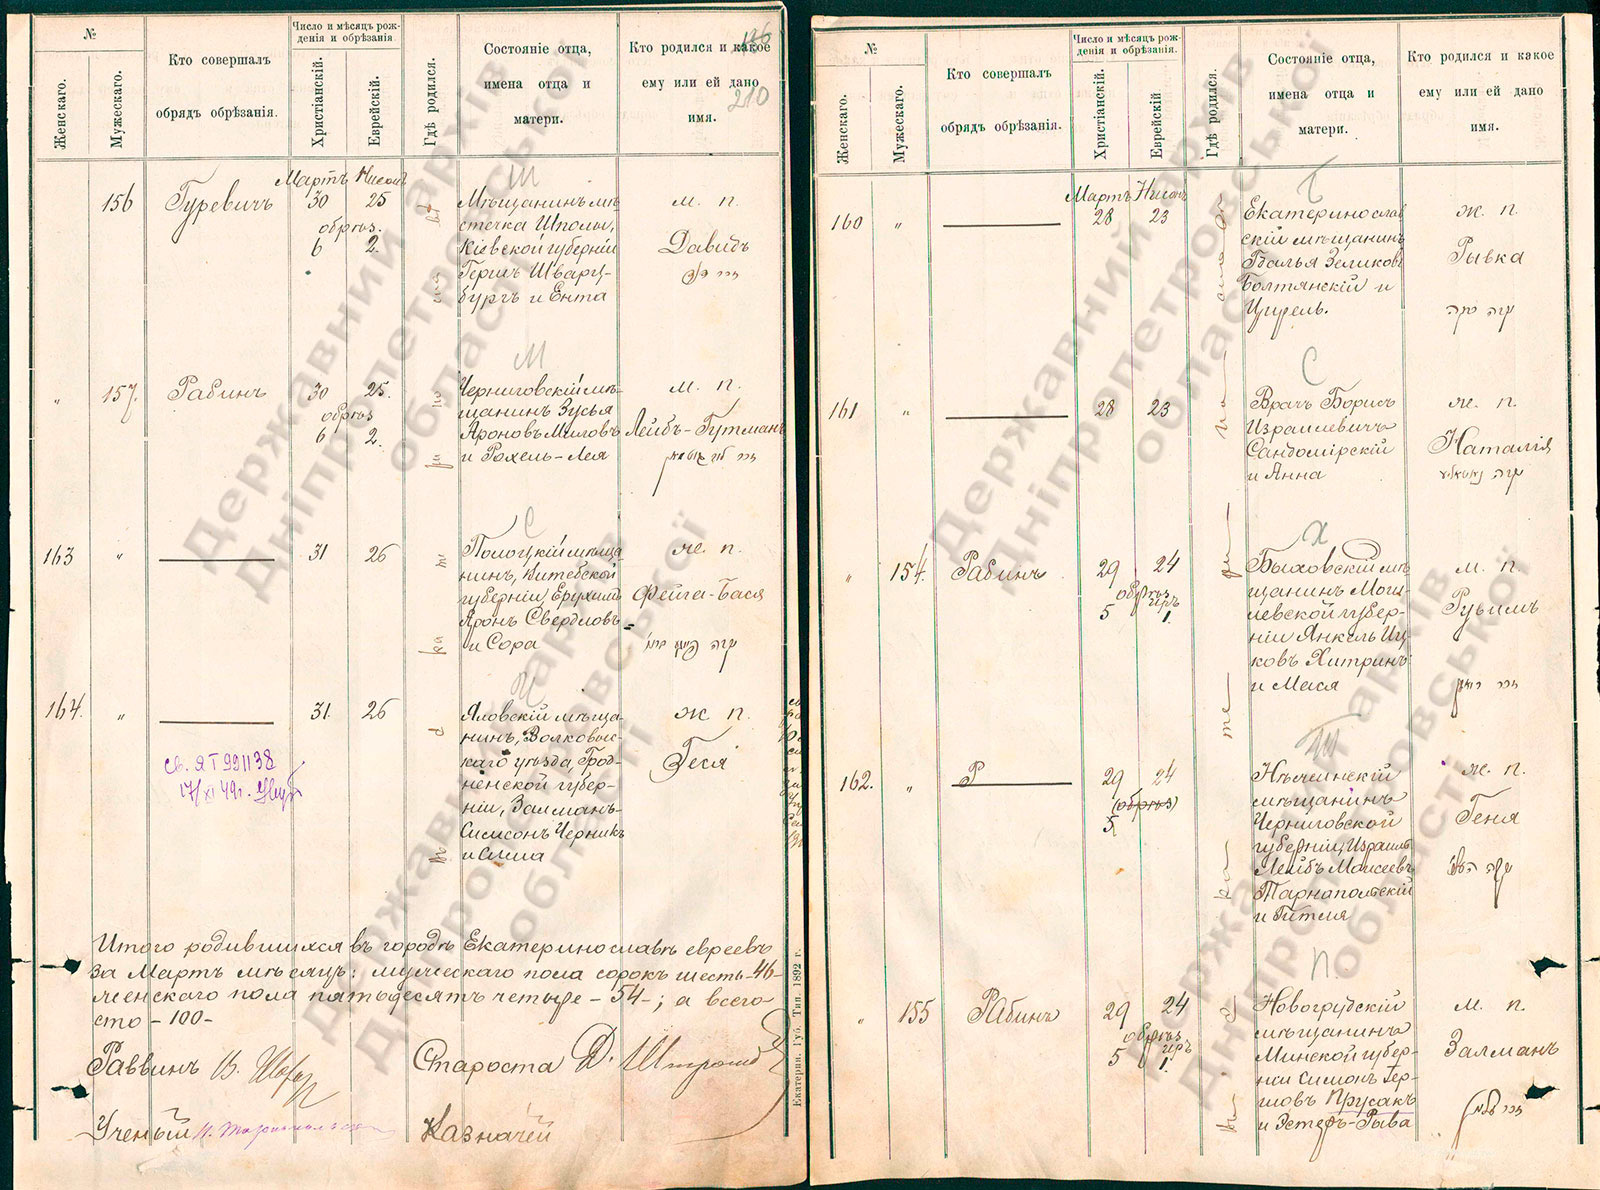 №
Женскаго.
Мужескаго.
Кто совершалъ
обрядъ обрѣзанія.
Число и мѣсяцъ рож-
денія и обрѣзанія
Христіанскій.
Еврейскій.
Гдѣ родился.
Состояніе отца,
имена отца и
матери.
Кто родился и какое
ему или ей дано
имя.
126
210
Мартъ Нисонъ
156 Гуревичъ 30 25
обрѣз.
6 2.
Ш
Мѣщанинъ мѣ-
стечка Шполы,
Кіевской губерніи
Гершъ Шварц-
бургъ и Ента
м. п.
Давидъ
זכר דוד
" 157. Рабинъ 30 25.
обрѣз
6 2.
М
Черниговскій мѣ-
щанинъ Зусья
Ароновъ Миловъ
и Рохель-Лея
м. п.
Лейбъ-Гутманъ
163 " 31 26
С
Полоцкій мѣща-
нинъ, Витебской
губерніи, Ерухимъ
Аронъ Свердловъ
и Сора
же. п.
Фейга-Бася
164. " 31. 26
Ч
Яловскій мѣща-
нинъ, Волковыс-
каго уѣзда, Грод-
ненской губер-
ніи, Залманъ-
Симсонъ Черникъ
и Сима
ж п.
Геся
св. ЯТ 991138
17/XI 49г.
Итого родившихся въ городѣ Екатеринославѣ евреевъ
за Мартъ мѣсяцъ: мужескаго пола сорокъ шесть -46-
женскаго пола пятьдесятъ четыре - 54-; а всего
сто - 100-
Раввинъ
Староста
Ученый
Казначей
Екатерин. Губ. Тип. 1892 г.
№
Женскаго.
Мужескаго.
Кто совершалъ
обрядъ обрѣзанія.
Число и мѣсяцъ рож-
денія и обрѣзанія.
Христіанскій.
Еврейскій
Гдѣ родился.
Состояніе отца,
имена отца и
матери.
Кто родился и какое
ему или ей дано
имя.
Мартъ Нисонъ
160 " 28 23
Б
Екатеринослав
скій мѣщанинъ
Болтянскій и
Цирель.
ж. п.
Рывка
161 " 28 23
С
Врачъ Борисъ
Израилевичъ
Сандомірскій
и Анна
же. п.
Наталія
" 154. Рабинъ 29 24
обрѣз
Іиръ
5 1.
Х
Быховскій мѣ
щанинъ Моги
левской губер-
ніи Янкель Иц
ковъ Хитринъ
и Мася
м. п.
Рувимъ
162. " Р 29 24
(обрѣз)
5
Т
Нѣжинскій
мѣщанинъ
Черниговской
губерніи, Израиль
Лейбъ Моисеевъ
Тарнапольскій
и Гитля
же. п.
Геня
" 155 Рабинъ 29 24
обрѣз
Іиръ
5 1.
П.
Новогрудскій
мѣщанинъ
Минской губер-
ніи Симонъ Гер-
шовъ Прусакъ
и Эстеръ-Рыва
м. п.
Залманъ
זכר זלמן
Державний архів
Дніпропетровської
області
Державний архів
Дніпропетровської
області
Державний архів
Дніпропетровської
області
Державний архів
Дніпропетровської
області